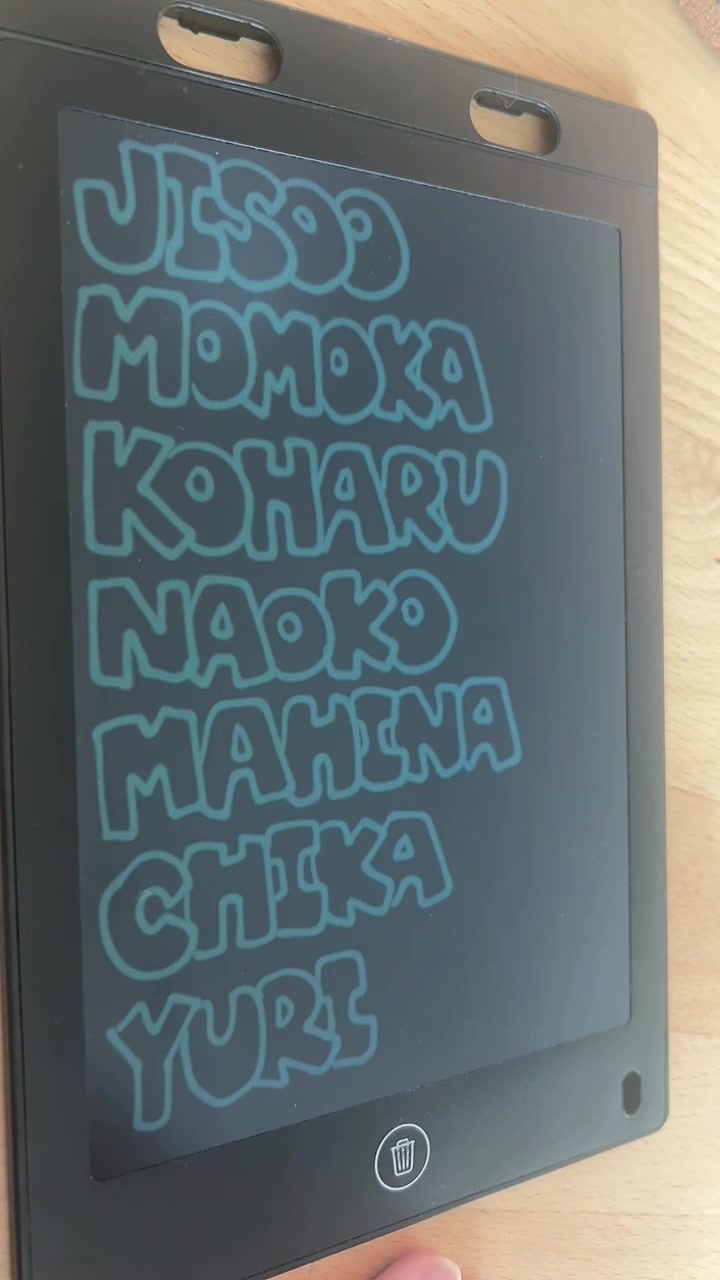 JISOO
MOMOKA
KOHARU
NAOKO
MAHINA
CHIKA
YURI